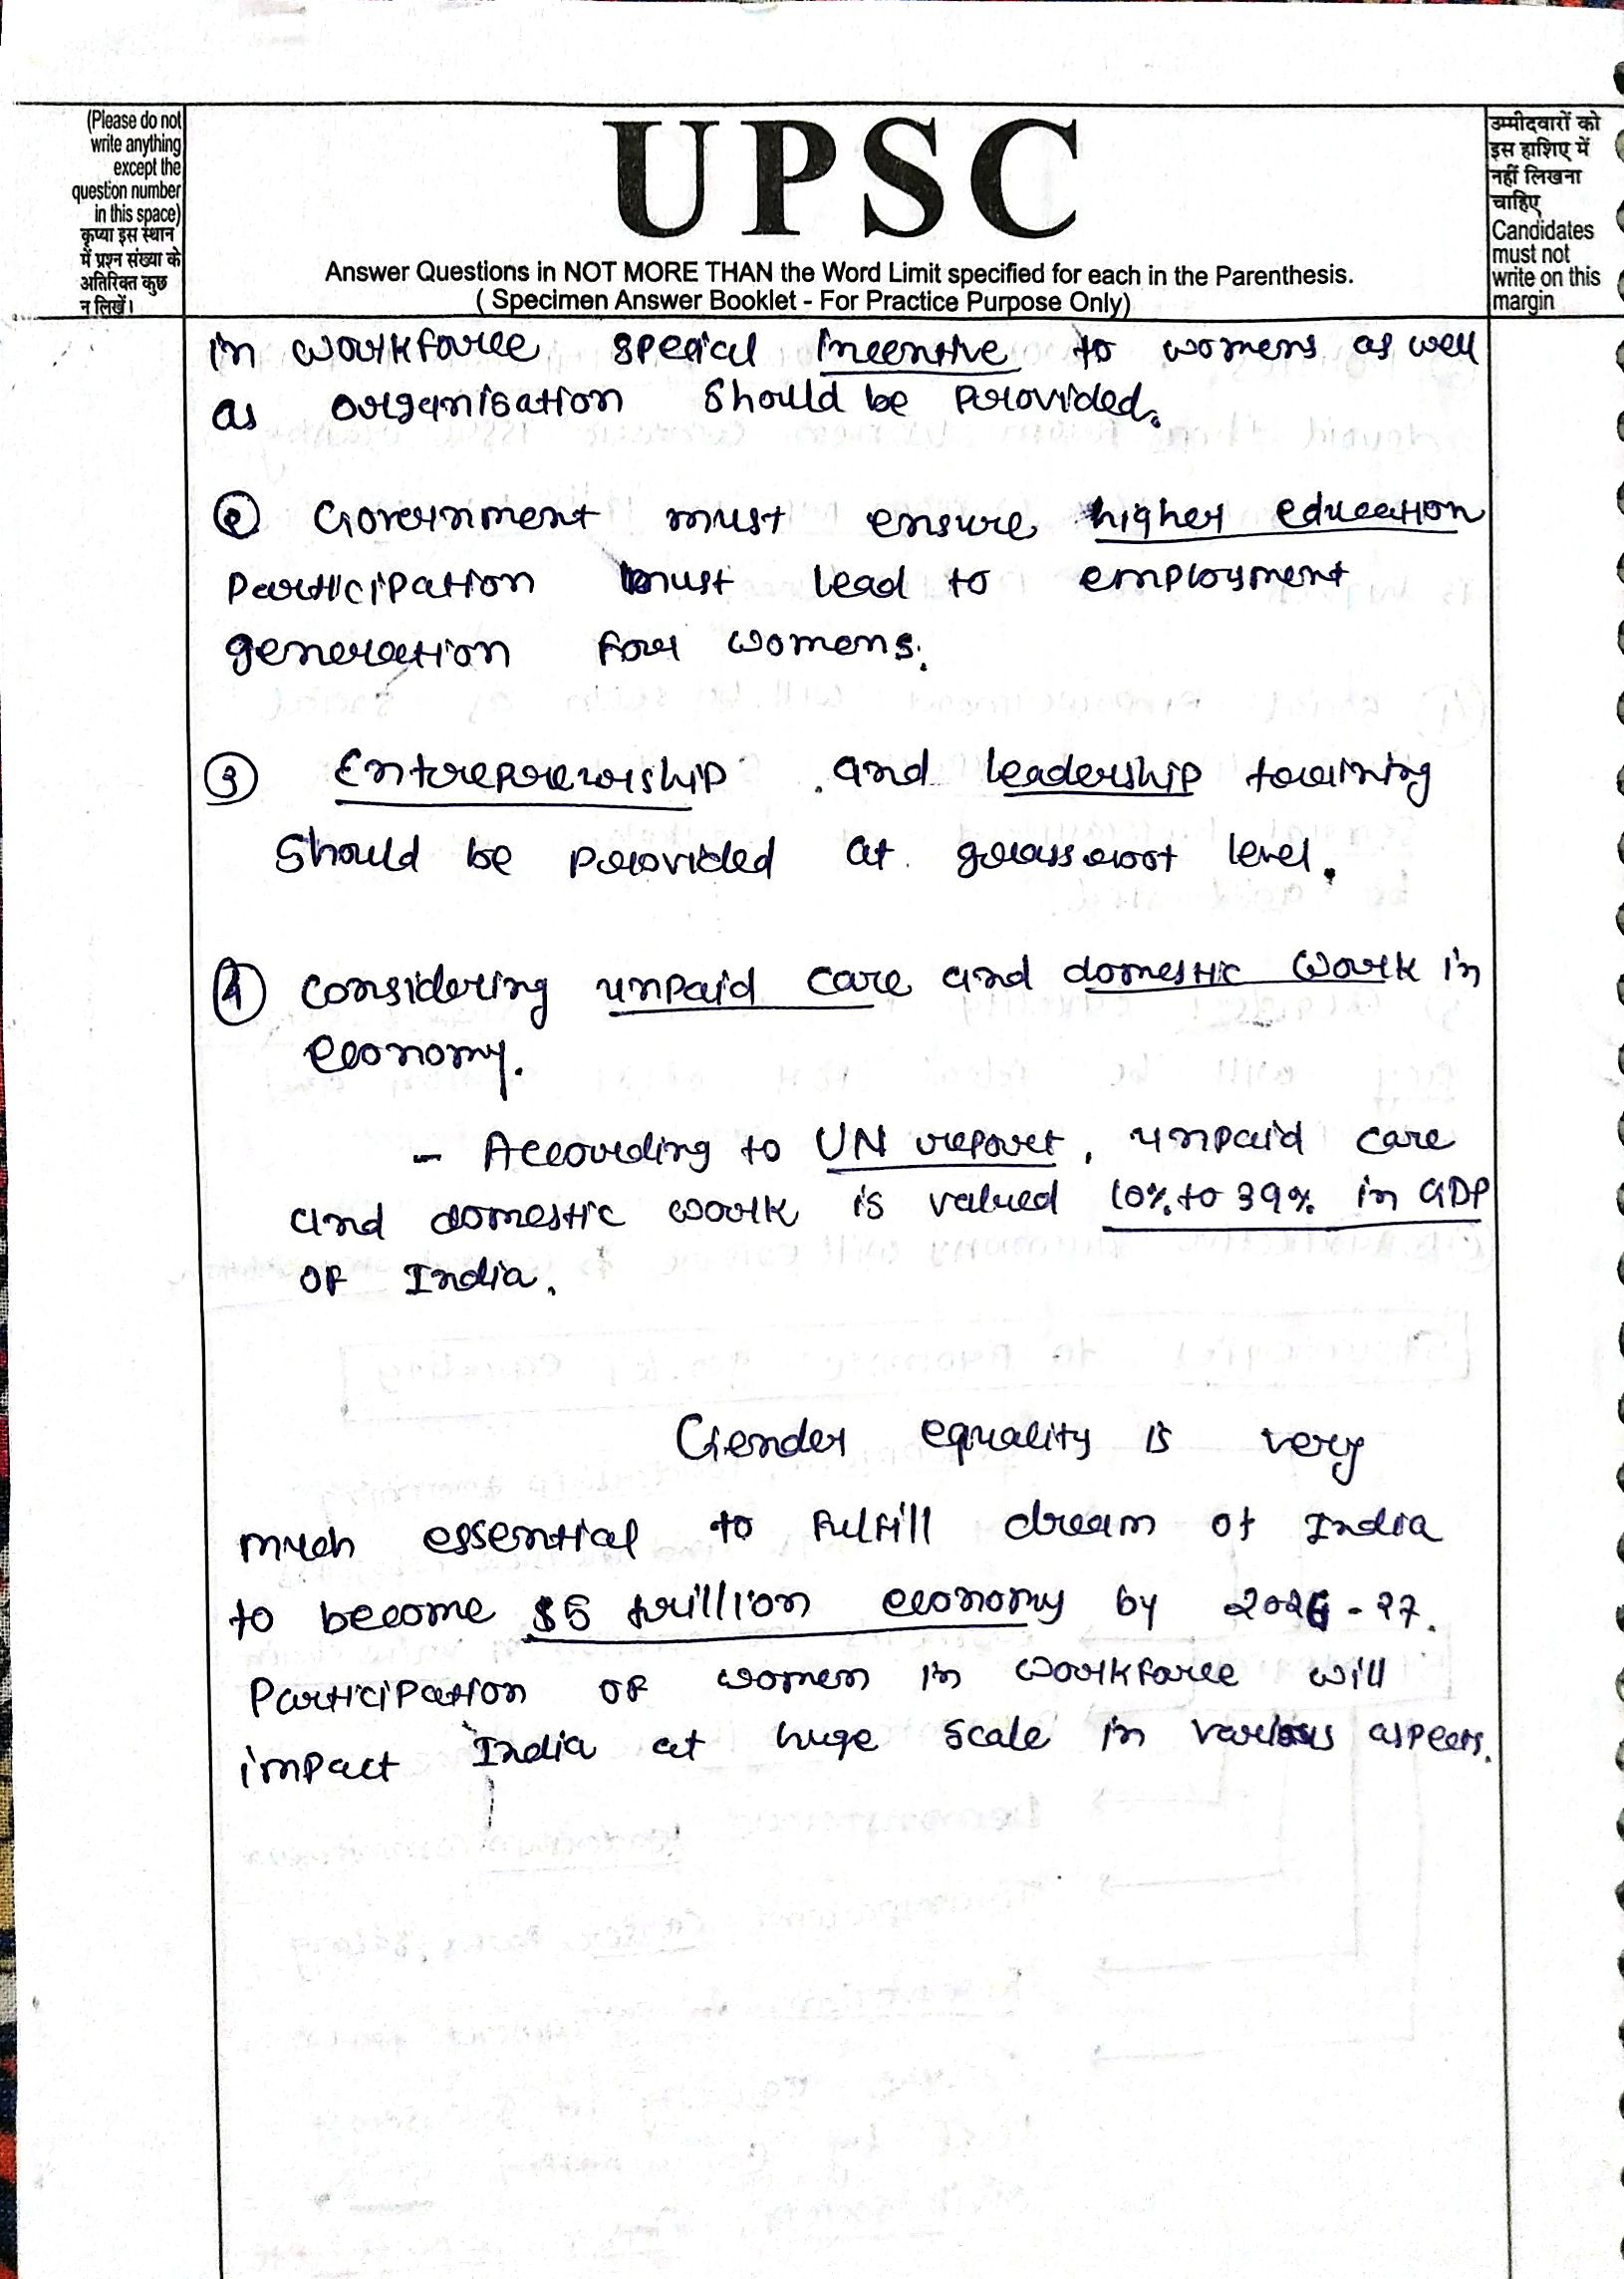 (Please do not
write anything
except the
question number
in this space)
कृप्या इस स्थान
में प्रश्न संख्या के
अतिरिक्त कुछ
न लिखें।
UPSC
Answer Questions in NOT MORE THAN the Word Limit specified for each in the Parenthesis.
( Specimen Answer Booklet - For Practice Purpose Only)
उम्मीदवारों को
इस हाशिए में
नहीं लिखना
चाहिए
Candidates
must not
write on this
margin
in workforce special incentive to womens as well
as organisation should be provided.
② Government must ensure higher education
participation must lead to employment
generation for womens.
③ Entreprenurship and leadership training
should be provided at grassroot level.
④ considering unpaid care and domestic work in
economy.
- According to UN report, unpaid care
and domestic work is valued 10% to 39% in GDP
of India.
Gender equality is very
much essential to fulfill dream of India
to become $5 trillion economy by 2026-27.
Participation of women in workforce will
impact India at huge scale in various aspects.